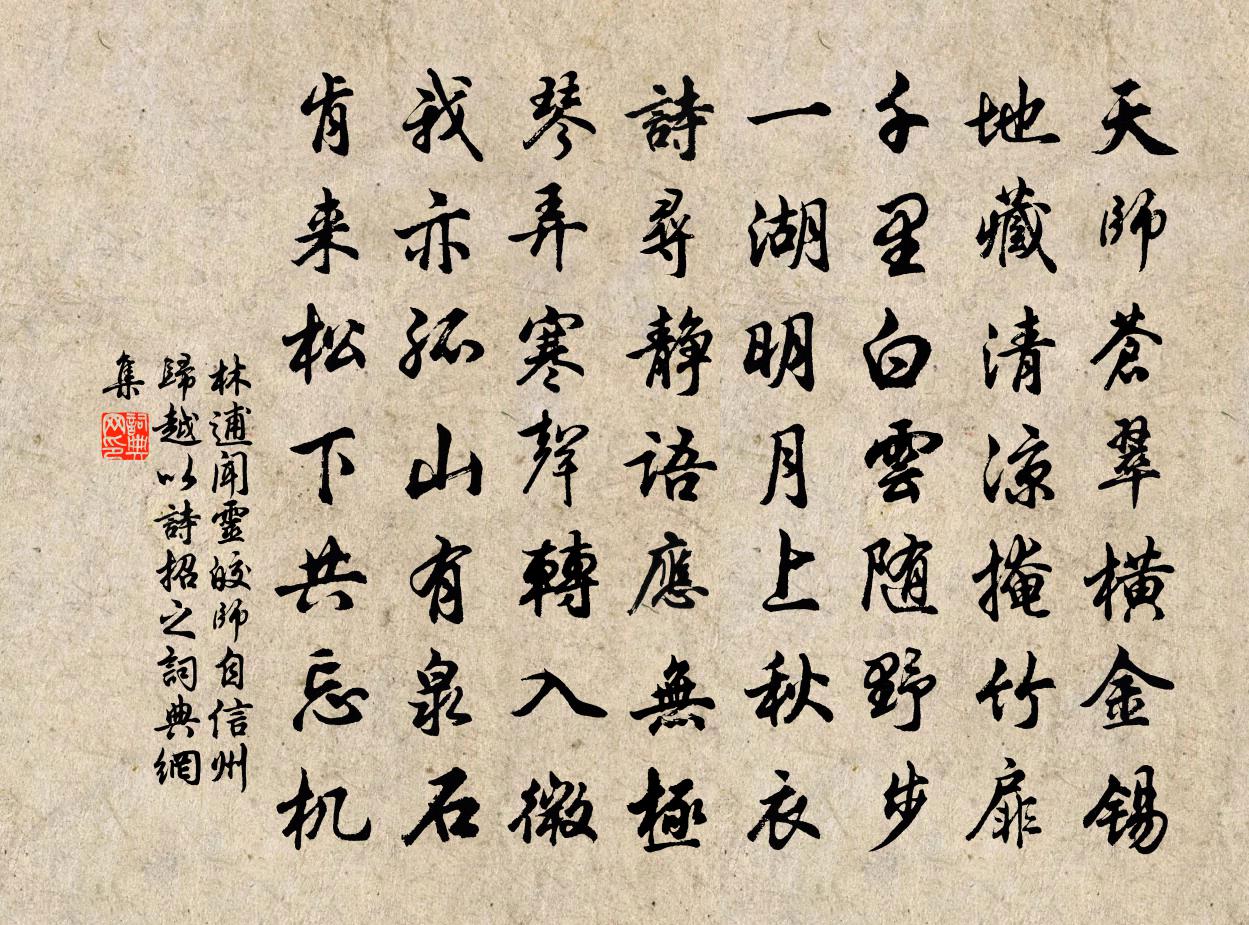 天師蒼翠橫金錫
地藏清涼掩竹扉
千里白雲随野步
一湖明月上秋衣
詩尋靜語應無極
琴弄寒聲轉入微
我亦孤山有泉石
肯来松下共忘机
林逋聞靈皎師自信州
歸越以詩招之詞典網
集
詞典
网印